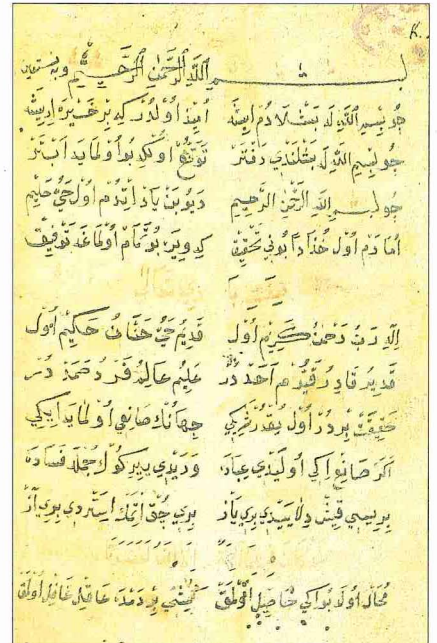 بسم الله الرحمن الرحيم وبه نستعين
چو بسم الله له بشلادم ايشه اميد اولدر كه بر خيره ايريشه
چو بسم الله له بشلندي دفتر اولمايه ابتر
چو بسم الله الرحمن الرحيم ديوبن ياد ايتدم اول حي حليم
اما دم اول خدادن بوني تحقيق كه ويره بو تمام اولماغه توفيق
اله رب رحمن كريم اول قديم حي حنان حكيم اول
قدير قادر قيوم احد در عليم عالم فرد صمد در
حقيقت بردر اول يقدر شريكي جهانك صانعي اولمايه ايكي
اكر صانع ايكي اوليدي ويريدي بربر كوك جمله فساده
بريسي قيش دلايسيدي بري ياز بري چق اتمك استردي بري از
محال اولا بو ايكي حاصل اولمق عاقل غافل اولمق